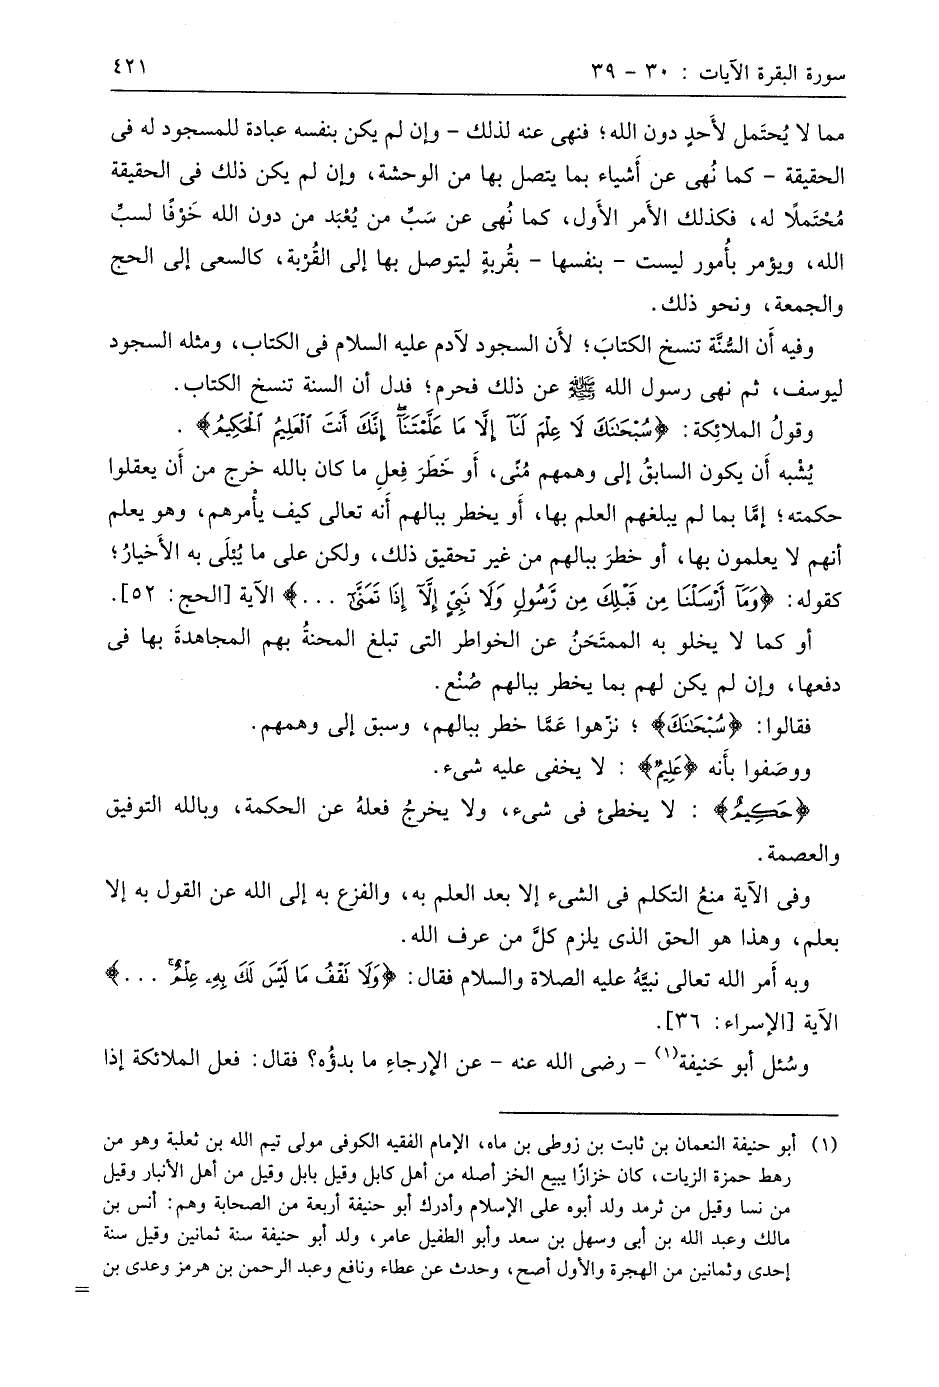 سورة البقرة الآيات : ٣٠ - ٣٩ ٤٢١
مما لا يُحتَمل لأَحدٍ دون الله؛ فنهى عنه لذلك - وإن لم يكن بنفسه عبادة للمسجود له فى
الحقيقة - كما نُهى عن أَشياء بما يتصل بها من الوحشة، وإن لم يكن ذلك فى الحقيقة
مُحْتَملًا له، فكذلك الأَمر الأَول، كما نُهى عن سَبِّ من يُعْبَد من دون الله خَوْفًا لسبِّ
الله، ويؤمر بأُمور ليست - بنفسها - بقُربةٍ ليتوصل بها إلى القُرْبة، كالسعى إلى الحج
والجمعة، ونحو ذلك.
وفيه أَن السُّنَّة تنسخ الكتابَ؛ لأَن السجود لآدم عليه السلام فى الكتاب، ومثله السجود
ليوسف، ثم نهى رسول الله ﷺ عن ذلك فحرم؛ فدل أن السنة تنسخ الكتاب.
وقولُ الملائِكة: ﴿سُبْحَٰنَكَ لَا عِلْمَ لَنَآ إِلَّا مَا عَلَّمْتَنَآۖ إِنَّكَ أَنتَ ٱلْعَلِيمُ ٱلْحَكِيمُ﴾ .
يُشْبه أَن يكون السابقُ إلى وهمهم مُنًى، أَو خَطَرَ فِعلِ ما كان بالله خرج من أَن يعقلوا
حكمته؛ إمَّا بما لم يبلغهم العلم بها، أَو يخطر ببالهم أَنه تعالى كيف يأْمرهم، وهو يعلم
أنهم لا يعلمون بها، أو خطرَ ببالهم من غير تحقيق ذلك، ولكن على ما يُبْلَى به الأَخيارُ؛
كقوله: ﴿وَمَآ أَرْسَلْنَا مِن قَبْلِكَ مِن رَّسُولٍ وَلَا نَبِيٍّ إِلَّآ إِذَا تَمَنَّىٰٓ ...﴾ الآية [الحج: ٥٢].
أو كما لا يخلو به الممتَحَنُ عن الخواطر التى تبلغ المحنةُ بهم المجاهدةَ بها فى
دفعها، وإن لم يكن لهم بما يخطر ببالهم صُنْع.
فقالوا: ﴿سُبْحَٰنَكَ﴾ ؛ نزّهوا عَمَّا خطر ببالهم، وسبق إلى وهمهم.
ووصَفوا بأَنه ﴿عَلِيمٌ﴾ : لا يخفى عليه شىء.
﴿حَكِيمٌ﴾ : لا يخطئ فى شىء، ولا يخرجُ فعلهُ عن الحكمة، وبالله التوفيق
والعصمة.
وفى الآية منعُ التكلم فى الشىء إلا بعد العلم به، والفزع به إلى الله عن القول به إلا
بعلم، وهذا هو الحق الذى يلزم كلَّ من عرف الله.
وبه أَمر الله تعالى نبيَّهُ عليه الصلاة والسلام فقال: ﴿وَلَا تَقْفُ مَا لَيْسَ لَكَ بِهِۦ عِلْمٌۚ ...﴾
الآية [الإسراء: ٣٦].
وسُئل أبو حَنيفة(١) - رضى الله عنه - عن الإرجاءِ ما بدؤُه؟ فقال: فعل الملائكة إذا
(١) أبو حنيفة النعمان بن ثابت بن زوطى بن ماه، الإمام الفقيه الكوفى مولى تيم الله بن ثعلبة وهو من
رهط حمزة الزيات، كان خزازًا يبيع الخز أصله من أهل كابل وقيل بابل وقيل من أهل الأنبار وقيل
من نسا وقيل من ثرمد ولد أبوه على الإسلام وأدرك أبو حنيفة أربعة من الصحابة وهم: أنس بن
مالك وعبد الله بن أبى وسهل بن سعد وأبو الطفيل عامر، ولد أبو حنيفة سنة ثمانين وقيل سنة
إحدى وثمانين من الهجرة والأول أصح، وحدث عن عطاء ونافع وعبد الرحمن بن هرمز وعدى بن
=